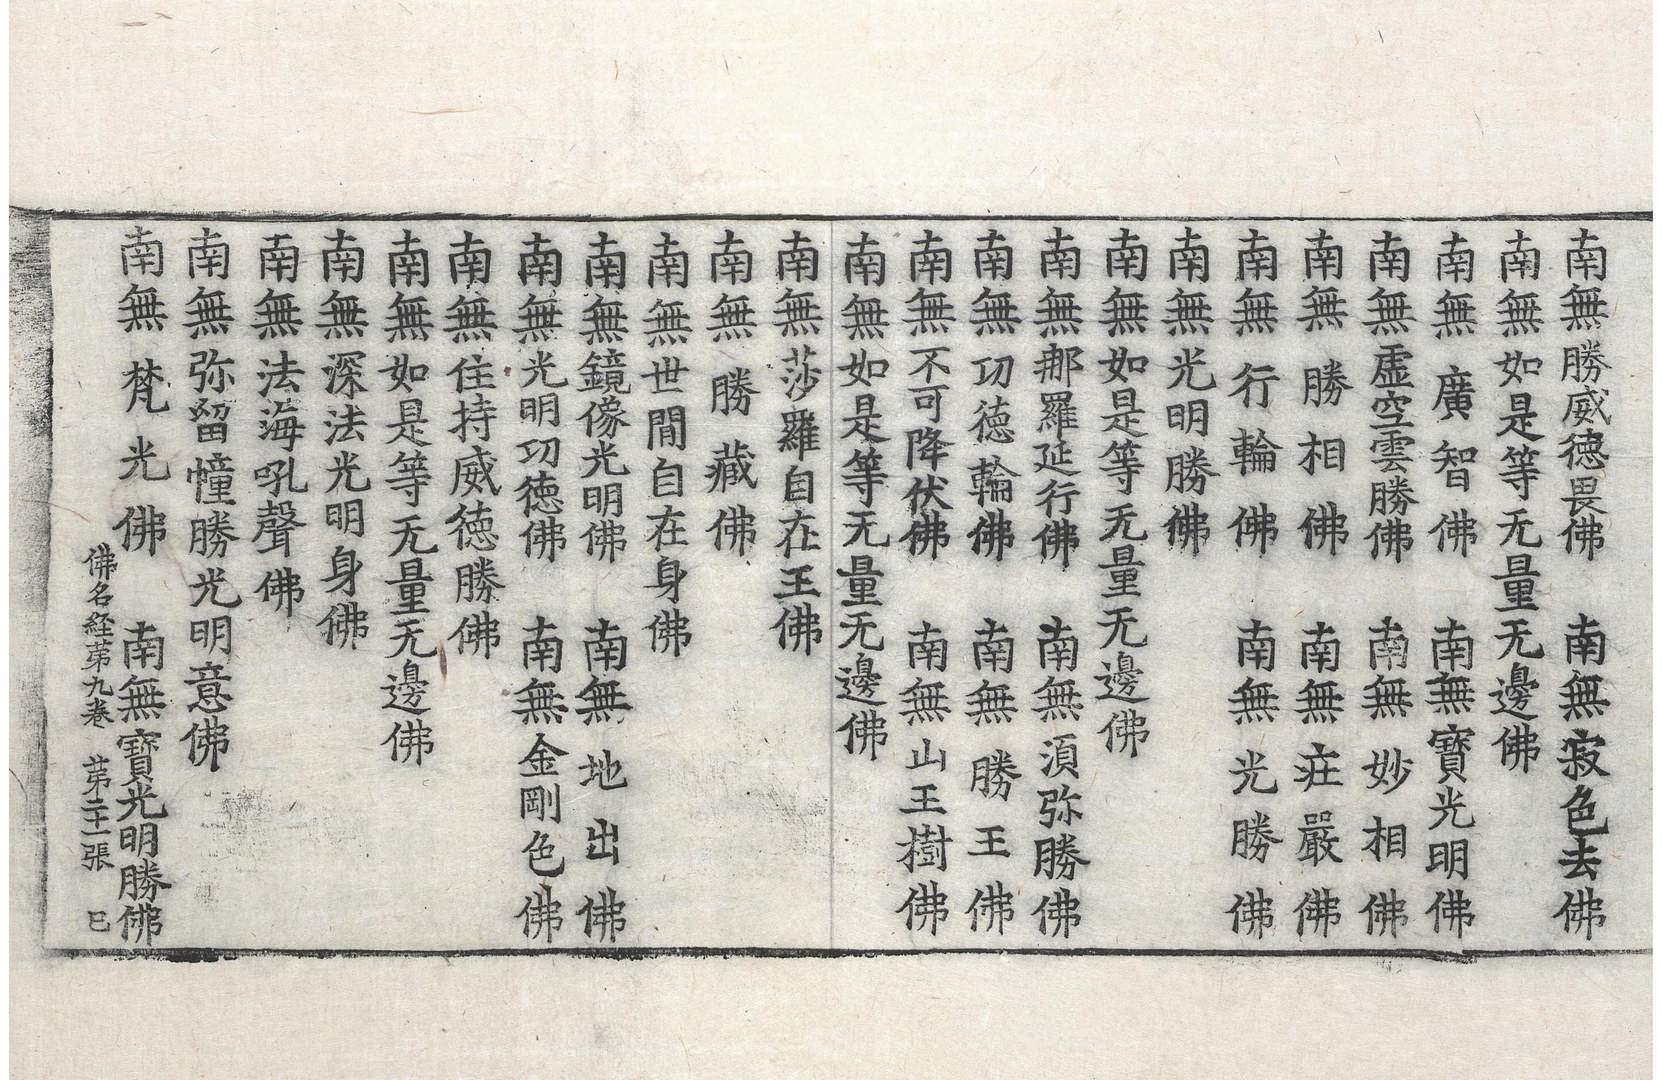 南無勝威德畏佛　南無寂色去佛
南無如是等无量无邊佛
南無廣智佛　南無寶光明佛
南無虛空雲勝佛　南無妙相佛
南無勝相佛　南無莊嚴佛
南無行輪佛　南無光勝佛
南無光明勝佛
南無如是等无量无邊佛
南無那羅延行佛　南無湏弥勝佛
南無功徳輪佛　南無勝王佛
南無不可降伏佛　南無山王樹佛
南無如是等无量无邊佛
南無莎羅自在王佛
南無勝藏佛
南無世間自在身佛
南無鏡像光明佛　南無地出佛
南無光明功徳佛　南無金剛色佛
南無住持威德勝佛
南無如是等无量无邊佛
南無深法光明身佛
南無法海吼聲佛
南無弥留幢勝光明意佛
南無梵光佛　南無寶光明勝佛
佛名経苐九巻　苐二十一張　巳